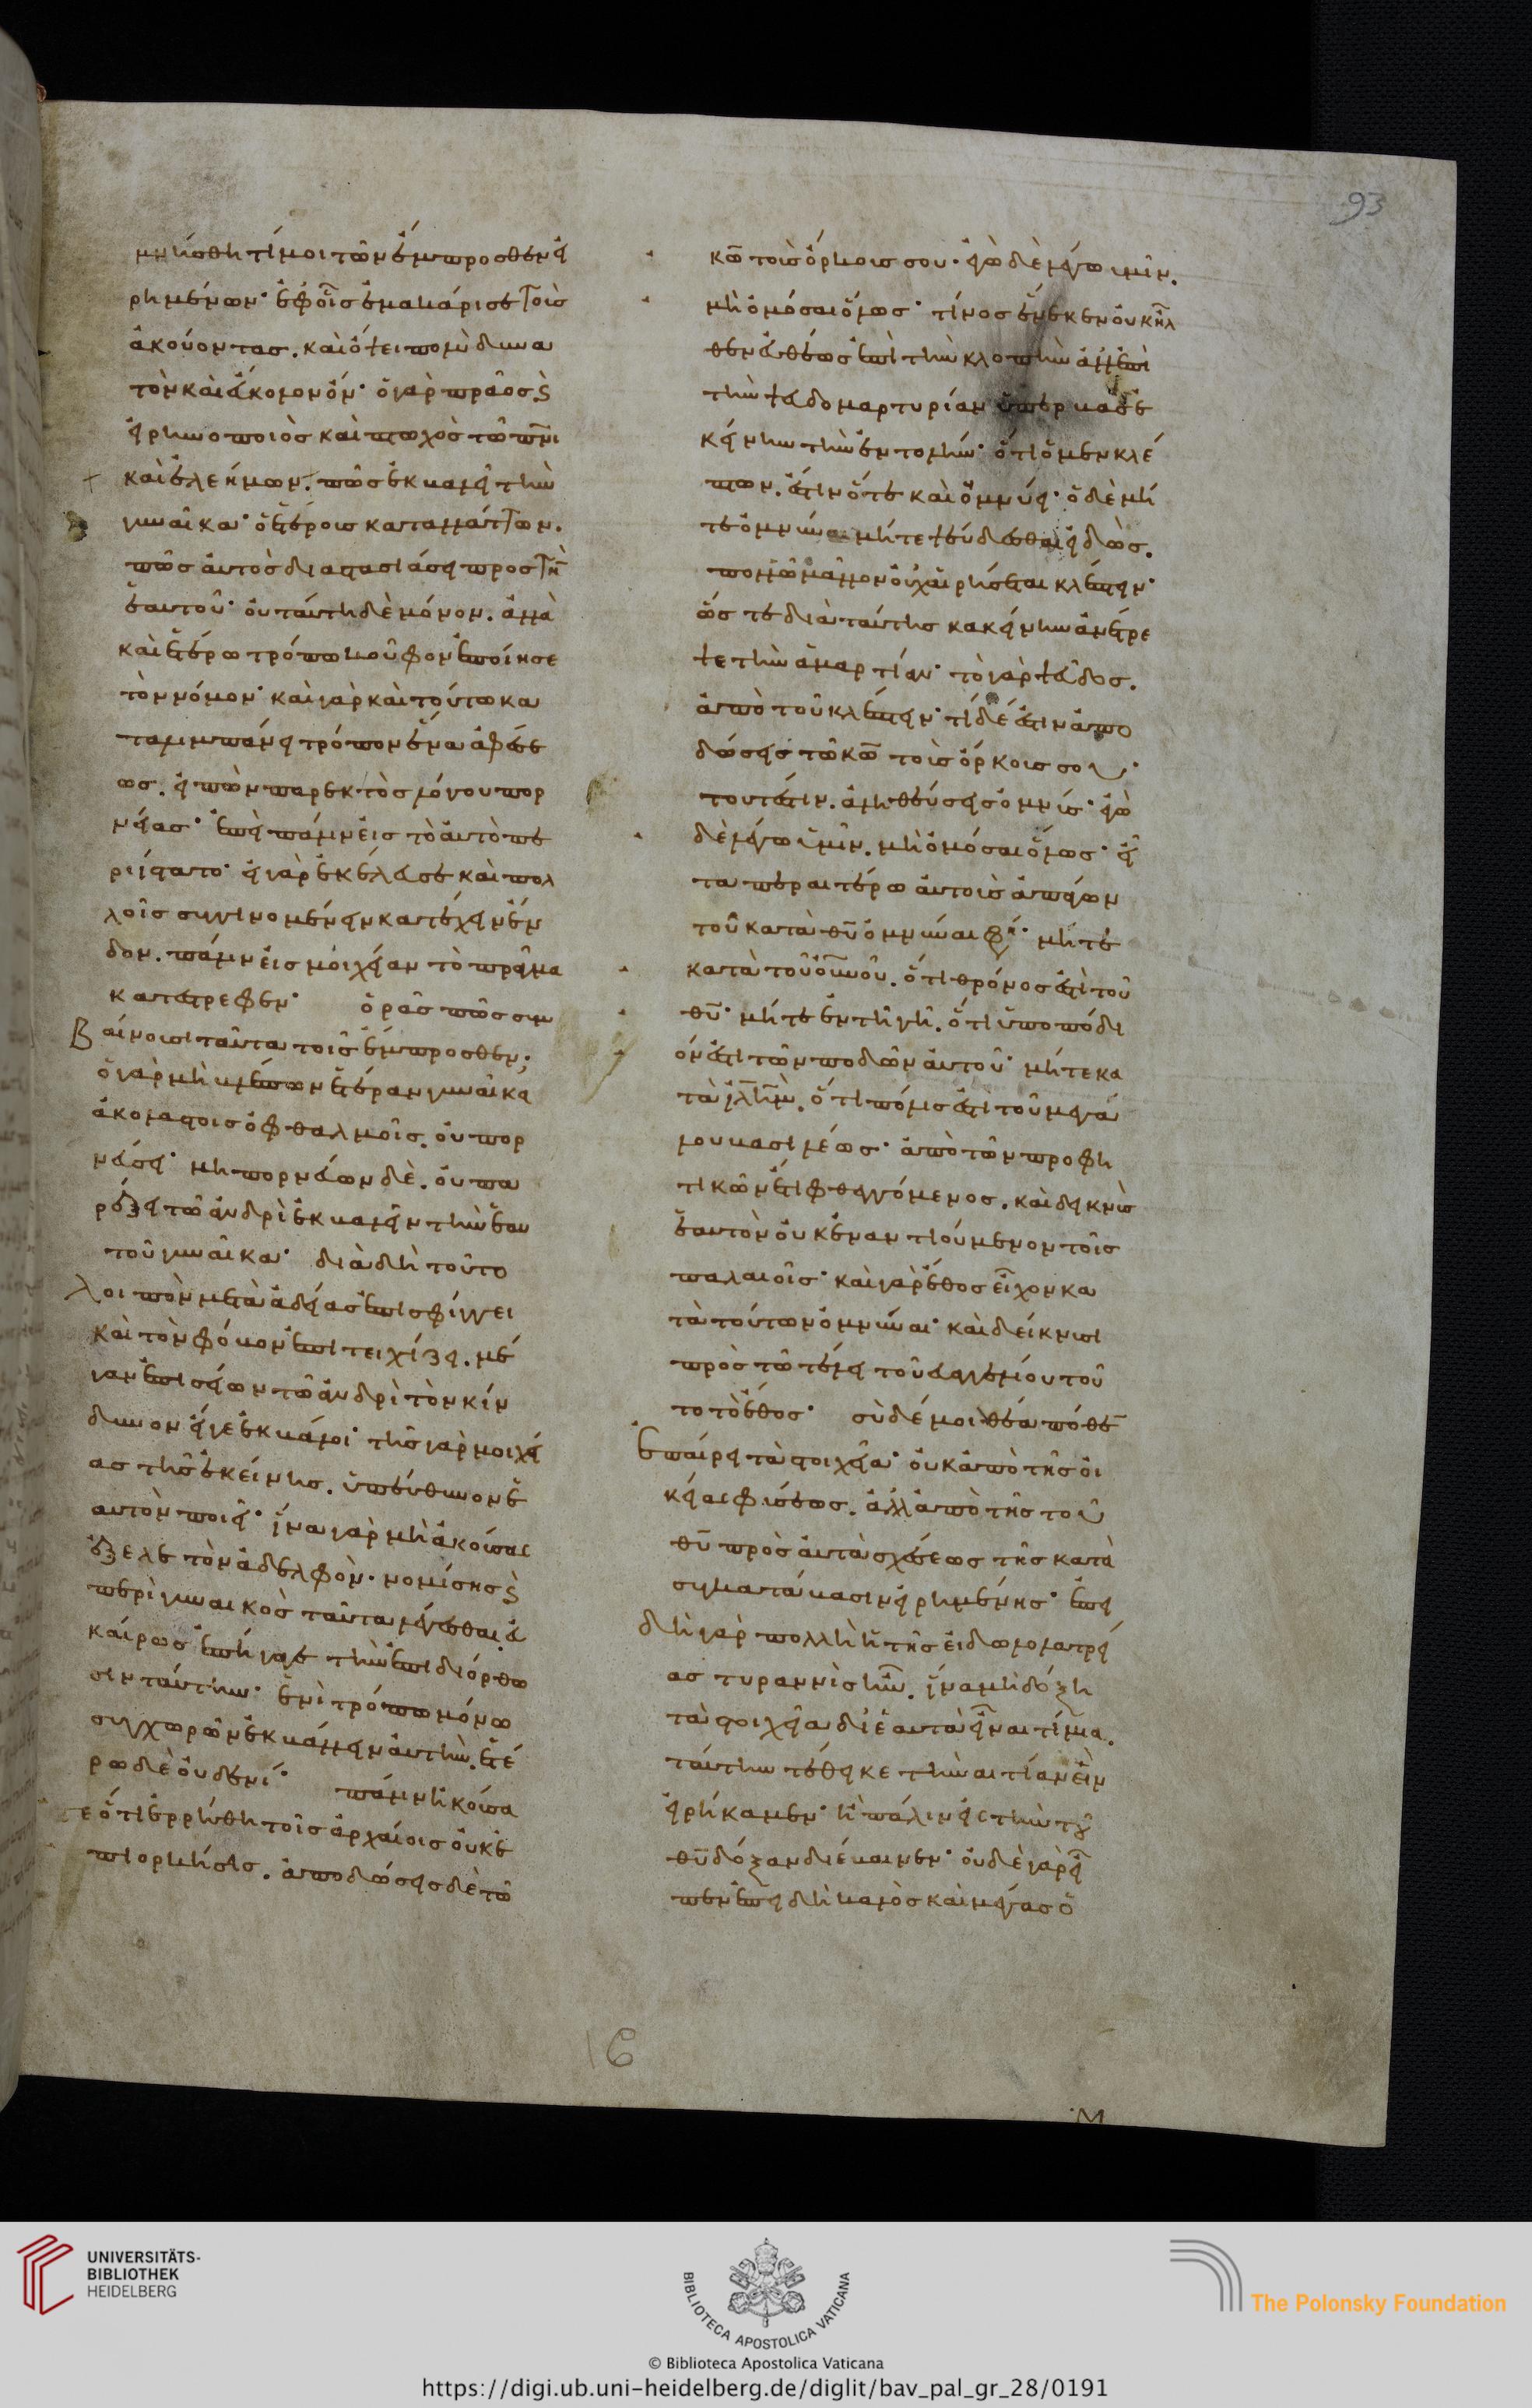 93
μνήσθητί μοι τῶν ἔμπροσθεν εἰ
ρημένων· ἐφ' οἷς ἐμακάρισε τοὺς
ἀκούοντας. καὶ ὄψει πολὺ δυνα
τὸν καὶ εὔκολον ὄν· ὁ γὰρ πρᾶος καὶ
εἰρηνοποιὸς καὶ πτωχὸς τῷ πνι
καὶ ἐλεήμων. πῶς ἐκβαλεῖ τὴν
γυναῖκα· ὁ ἑτέρους καταλλάττων.
πῶς αὐτὸς διαστασιάσει πρὸς τὴν
ἑαυτοῦ· οὐ ταύτη δὲ μόνον. ἀλλὰ
καὶ ἑτέρω τρόπω κοῦφον ἐποίησε
τὸν νόμον· καὶ γὰρ καὶ τούτω κα
ταλιμπάνει τρόπον ἕνα ἀφέσε
ως. εἰπὼν παρεκτὸς λόγου πορ
νείας· ἐπεὶ πάλιν εἰς τὸ αὐτὸ πε
ριίστατο· εἰ γὰρ ἐκέλευσε καὶ πολ
λοῖς συγγινομένην κατέχειν ἔν
δον. πάλιν εἰς μοιχείαν τὸ πρᾶγμα
κατέστρεφεν· ὁρᾶς πῶς συμ
βαίνουσι ταῦτα τοῖς ἔμπροσθεν;
ὁ γὰρ μὴ βλέπων ἑτέραν γυναῖκα
ἀκολάστοις ὀφθαλμοῖς. οὐ πορ
νεύσει· μὴ πορνεύων δὲ. οὐ πα
ρέξει τῷ ἀνδρὶ ἐκβαλεῖν τὴν ἑαυ
τοῦ γυναῖκα· διὰ δὴ τοῦτο
λοιπὸν μετὰ ἀδείας ἐπισφίγγει
καὶ τὸν φόβον ἐπιτειχίζει. μέ
γαν ἐπισείων τῷ ἀνδρὶ τὸν κίν
δυνον εἴγε ἐκβάλοι· τῆς γὰρ μοιχεί
ας τῆς ἐκείνης. ὑπεύθυνον ἑ
αυτὸν ποιεῖ· ἵνα γὰρ μὴ ἀκούσας
ἔξελε τὸν ὀφθαλμὸν· νομίσης καὶ
περὶ γυναικὸς ταῦτα λέγεσθαι· εὐ
καίρως ἐπήγαγε τὴν ἐπιδιόρθω
σιν ταύτην· ἑνὶ τρόπω μόνω
συγχωρῶν ἐκβάλλειν αὐτὴν. ἑτέ
ρω δὲ οὐδενί· πάλιν ἠκούσα
τε ὅτι ἐρρήθη τοῖς ἀρχαίοις οὐκ ἐ
πιορκήσεις. ἀποδώσεις δὲ τῷ
κω τοὺς ὅρκους σου· ἐγὼ δὲ λέγω ὑμῖν.
μὴ ὀμόσαι ὅλως· τίνος ἕνεκεν οὐκ ἦλ
θεν εὐθέως ἐπὶ τὴν κλοπὴν ἀλλ' ἐπὶ
τὴν ψευδομαρτυρίαν ὑπερβὰς ἐ
κείνην τὴν ἐντολήν· ὅτι ὁ μὲν κλέ
πτων. ἔστιν ὅτε καὶ ὀμνύει· ὁ δὲ μή
τε ὀμνύναι μήτε ψεύδεσθαι εἰδὼς.
πολλῷ μᾶλλον οὐχ αἱρήσεται κλέπτειν·
ὥστε διὰ ταύτης κακείνην ἀνέτρε
ψε τὴν ἁμαρτίαν· τὸ γὰρ ψεῦδος.
ἀπὸ τοῦ κλέπτειν· τί δέ ἐστιν ἀπο
δώσεις τῷ κω τοὺς ὅρκους σου·
τουτέστιν. ἀληθεύσεις ὀμνύς· ἐγὼ
δὲ λέγω ὑμῖν. μὴ ὀμόσαι ὅλως· εἶ
τα περαιτέρω αὐτοὺς ἀπάγων
τοῦ κατὰ θυ ὀμνύναι φησί· μήτε
κατὰ τοῦ οὐνοῦ. ὅτι θρόνος ἐστὶ τοῦ
θυ· μήτε ἐν τῇ γῇ. ὅτι ὑποπόδι
όν ἐστι τῶν ποδῶν αὐτοῦ· μήτε κα
τὰ ἱλημ. ὅτι πόλις ἐστὶ τοῦ μεγά
λου βασιλέως· ἀπὸ τῶν προφη
τικῶν ἔτι φθεγγόμενος. καὶ δεικνὺς
ἑαυτὸν οὐκ ἐναντιούμενον τοῖς
παλαιοῖς· καὶ γὰρ ἔθος εἶχον κα
τὰ τούτων ὀμνύναι· καὶ δείκνυσι
πρὸς τῷ τέλει τοῦ εὐαγγελίου τοῦ
το τὸ ἔθος· σὺ δέ μοι θέα πόθεν
ἐπαίρει τὰ στοιχεῖα· οὐκ ἀπὸ τῆς οἰ
κείας φύσεως. ἀλλ' ἀπὸ τῆς τοῦ
θυ πρὸς αὐτὰ σχέσεως τῆς κατὰ
συγκατάβασιν εἰρημένης· ἐπει
δὴ γὰρ πολλὴ ἡ τῆς εἰδωλολατρεί
ας τυραννὶς ἦν. ἵνα μὴ δόξη
τὰ στοιχεῖα δι' ἑαυτὰ εἶναι τίμια.
ταύτην τέθεικε τὴν αἰτίαν ἣν
εἰρήκαμεν· ἣ πάλιν εἰς τὴν τοῦ
θυ δόξαν διέβαινεν· οὐδὲ γὰρ εἶ
πεν ἐπειδὴ καλὸς καὶ μέγας ὁ
16
UNIVERSITÄTS-
BIBLIOTHEK
HEIDELBERG
BIBLIOTECA APOSTOLICA VATICANA
The Polonsky Foundation
© Biblioteca Apostolica Vaticana
https://digi.ub.uni-heidelberg.de/diglit/bav_pal_gr_28/0191